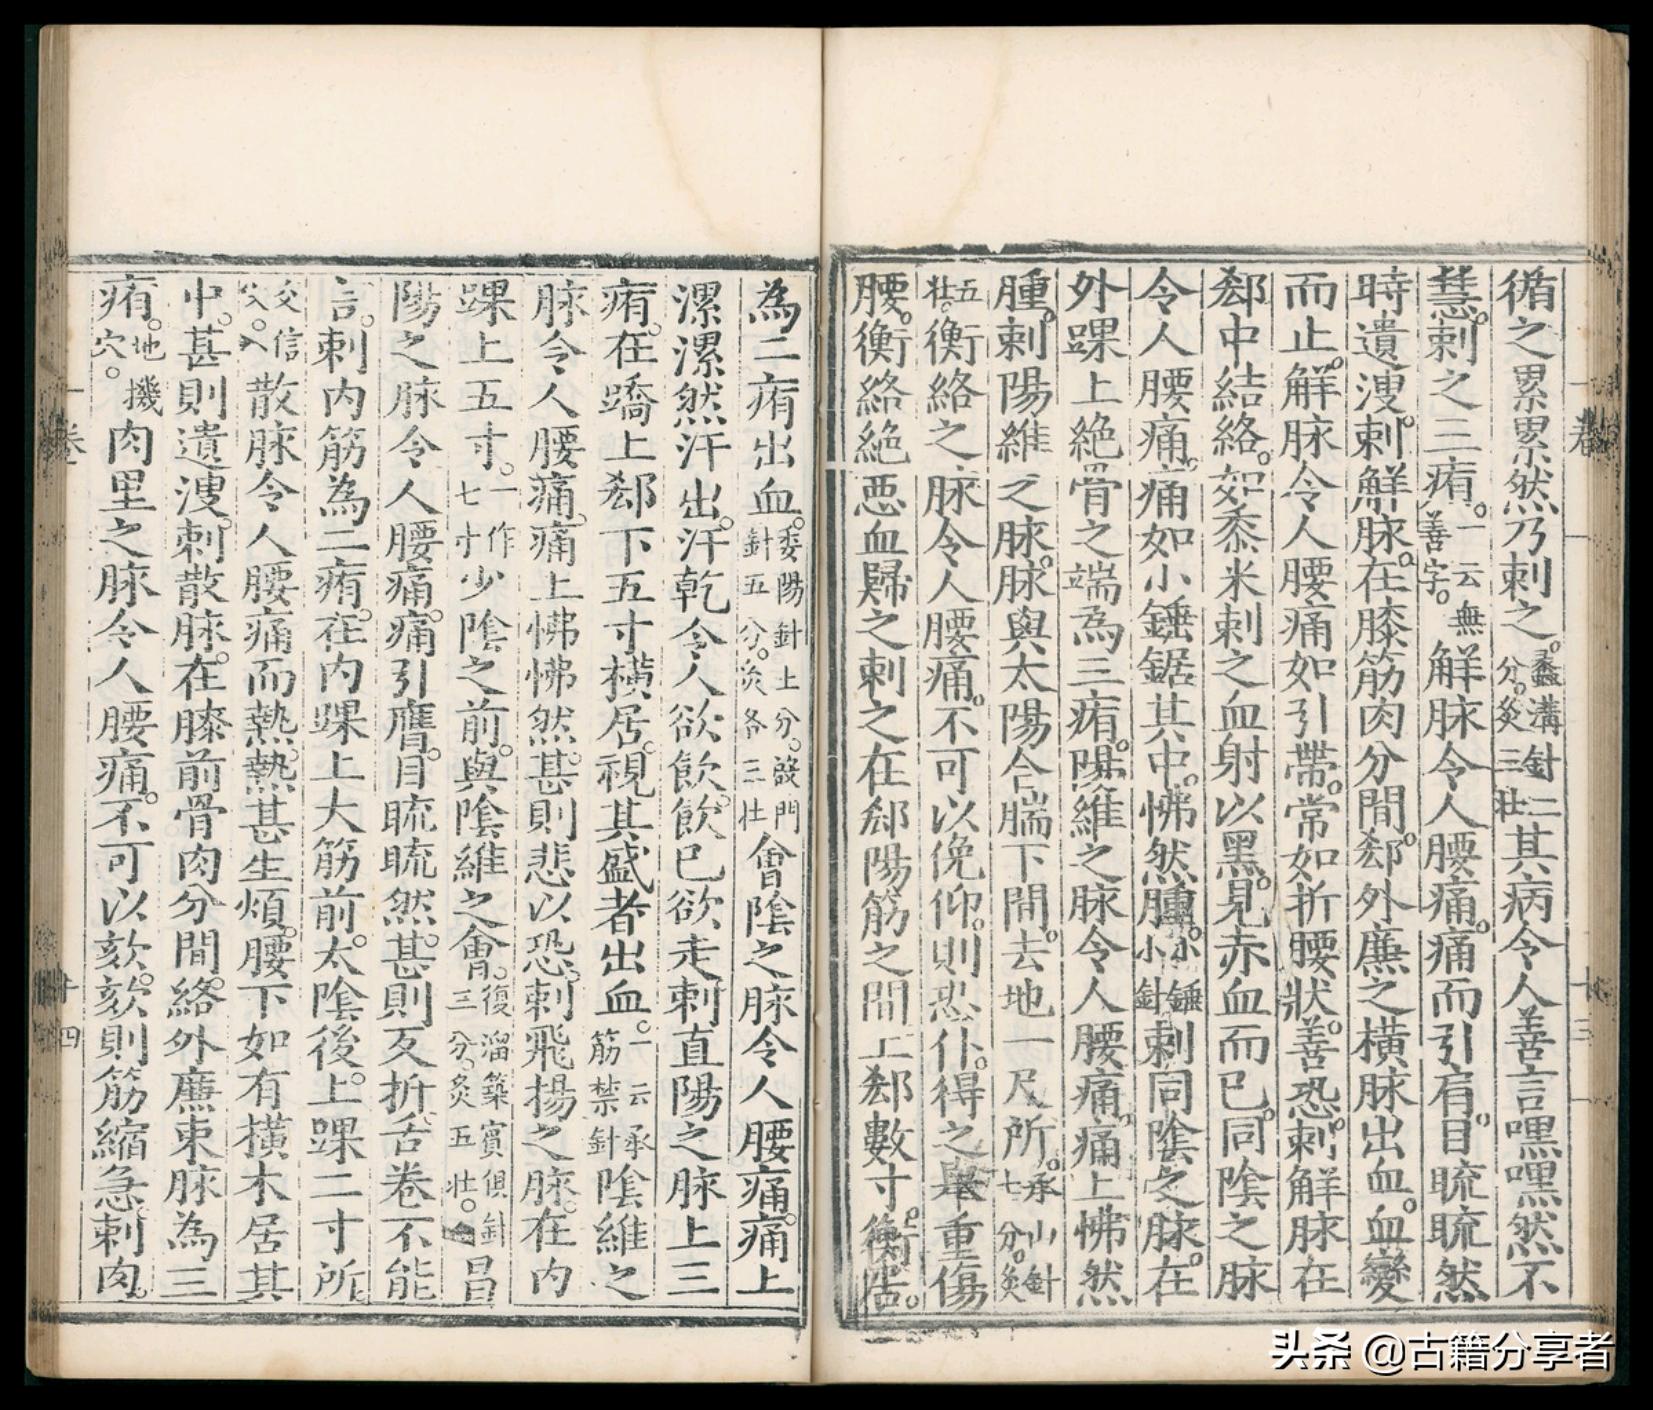 循之累累然乃刺之。蠡溝針二分。灸三壯其病令人善言嘿嘿然不
慧。刺之三痏。一云無善字。解脉令人腰痛。痛而引肩。目䀮䀮然
時遺溲。刺解脉。在膝筋肉分間。郄外廉之橫脉出血。血變
而止。解脉令人腰痛如引帶。常如折腰狀。善恐。刺解脉在
郄中結絡。如黍米刺之血射以黑。見赤血而已。同陰之脉
令人腰痛。痛如小錘鋸其中。怫然腫。小錘小針刺同陰之脉。在
外踝上絶骨之端為三痏。陽維之脉令人腰痛。痛上怫然
腫。刺陽維之脉。脉與太陽合腨下間。去地一尺所。承山針七分。灸
五壯。衡絡之脉令人腰痛。不可以俛仰。則恐仆。得之舉重傷
腰。衡絡絶惡血歸之刺之在郄陽筋之間上郄數寸。衡居。
為二痏出血。委陽針上分。殷門針五分。灸各三壯會陰之脉令人腰痛。痛上
漯漯然汗出。汗乾令人欲飲。飲已欲走刺直陽之脉上三
痏。在蹻上郄下五寸橫居。視其盛者出血。一云承筋禁針陰維之
脉令人腰痛。痛上怫怫然。甚則悲以恐。刺飛揚之脉。在内
踝上五寸。一作七寸少陰之前。與陰維之會。復溜築賓俱針三分。灸五壯。昌
陽之脉令人腰痛。痛引膺。目䀮䀮然。甚則反折。舌卷不能
言。刺内筋為二痏。在内踝上大筋前。太陰後。上踝二寸所
交信穴。散脉令人腰痛而熱。熱甚生煩。腰下如有橫木居其
中。甚則遺溲。刺散脉。在膝前骨肉分間。絡外廉束脉為三
痏。地機穴。肉里之脉令人腰痛。不可以欬。欬則筋縮急。刺肉
卷一
十三
卷一
十四
头条 @古籍分享者